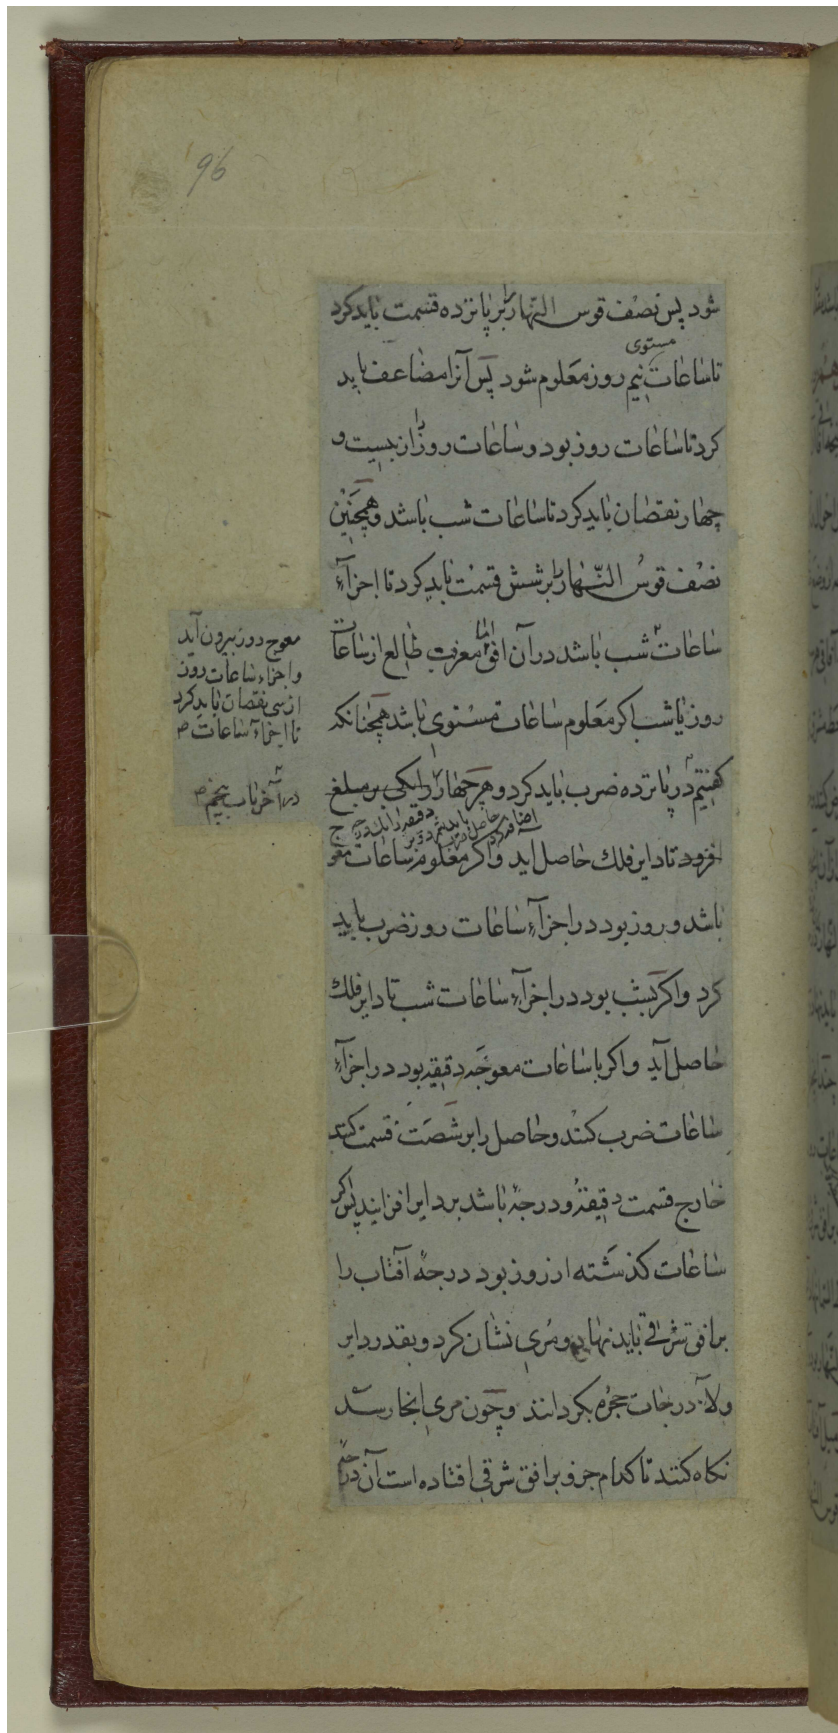 96
شود پس نصف قوس النهار را بر پانزده قسمت باید کرد
مستوی
تا ساعات نیم روز معلوم شود پس آنرا مضاعف باید
کرد تا ساعات روز بود و ساعات روز را از بیست و
چهار نقصان باید کرد تا ساعات شب باشد و همچنین
نصف قوس النهار را بر شش قسمت باید کرد تا اجزآء
ساعات شب باشد در آن افق اما معرفت طالع از ساعات
روز یا شب اکر معلوم ساعات مستوی باشد همچنانکه
کفتیم در پانزده ضرب باید کرد و هر چهار را یکی بر مبلغ
دقیقه را
افزود تا دایر فلک حاصل اید و اکر معلوم ساعات معوج
باشد و روز بود در اجزآء ساعات روز ضرب باید
کرد و اکر بشب بود در اجزآء ساعات شب تا دایر فلک
حاصل آید و اکر با ساعات معوجه دقیقه بود در اجزآء
ساعات ضرب کنند و حاصل را بر شصت قسمت کنند
خارج قسمت دقیقه و درجه باشد بر دایر افزایند پس اکر
ساعات کذشته از روز بود درجه آفتاب را
بر افق شرقی باید نهاد و مری نشان کرد و بقدر دایر
ولآء درجات حجره بکردانند و چون مری انجا رسد
نکاه کنند تا کدام جزو بر افق شرقی افتاده است آن درجه
معوج روز بیرون آید
و اجزاء ساعات روز
از سی نقصان باید کرد
تا اجزآء ساعات
در آخر باب پنجم